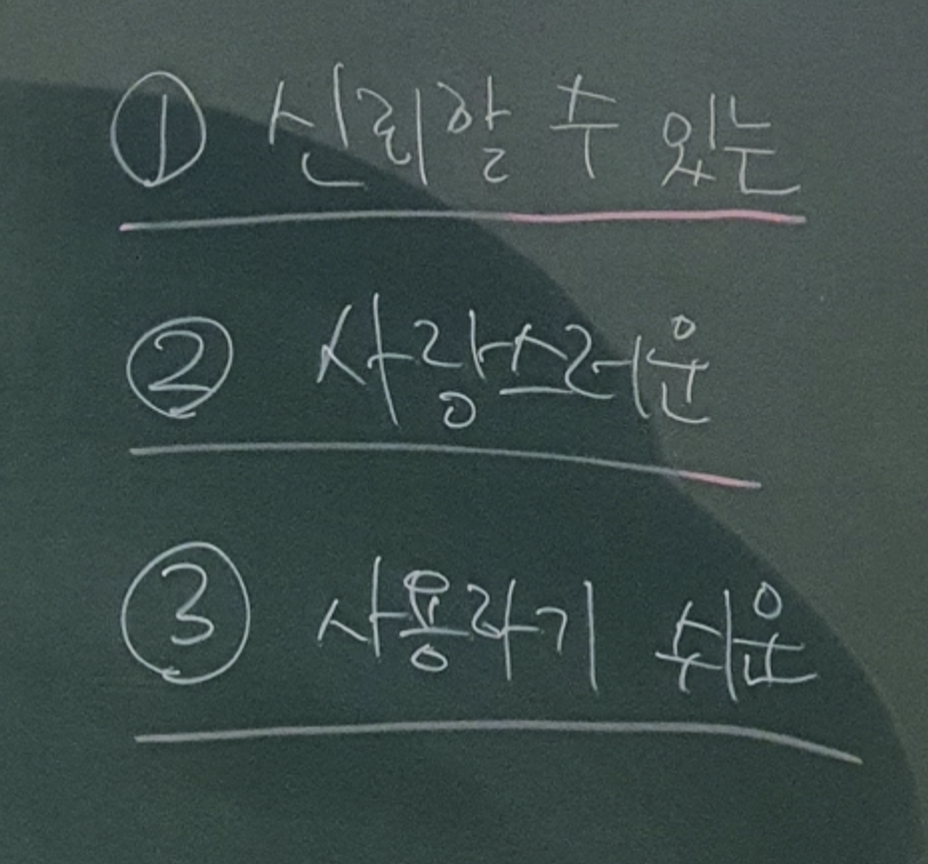 ① 신뢰할 수 있는
② 사랑스러운
③ 사용하기 쉬운